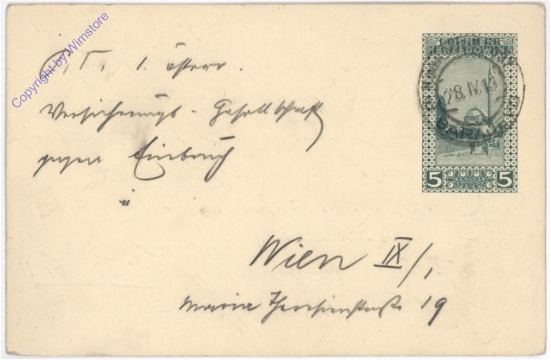 P.T. 1. österr.
Versicherungs-Gesellschaft
gegen Einbruch
Wien IX/1
Maria Theresienstraße 19
28.IV.13
5 5
Copyright by Wimstore